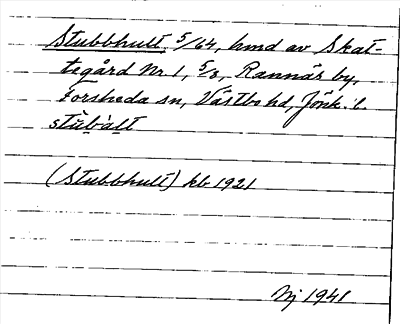 Stubbhult, 5/64, hmd av Skat-
tegård Nr 1, 5/8, Rannäs by,
Forsheda sn, Västbo hd, Jönk. l.
stùb̀alt
(Stubbhult) kb 1921
Nj 1941